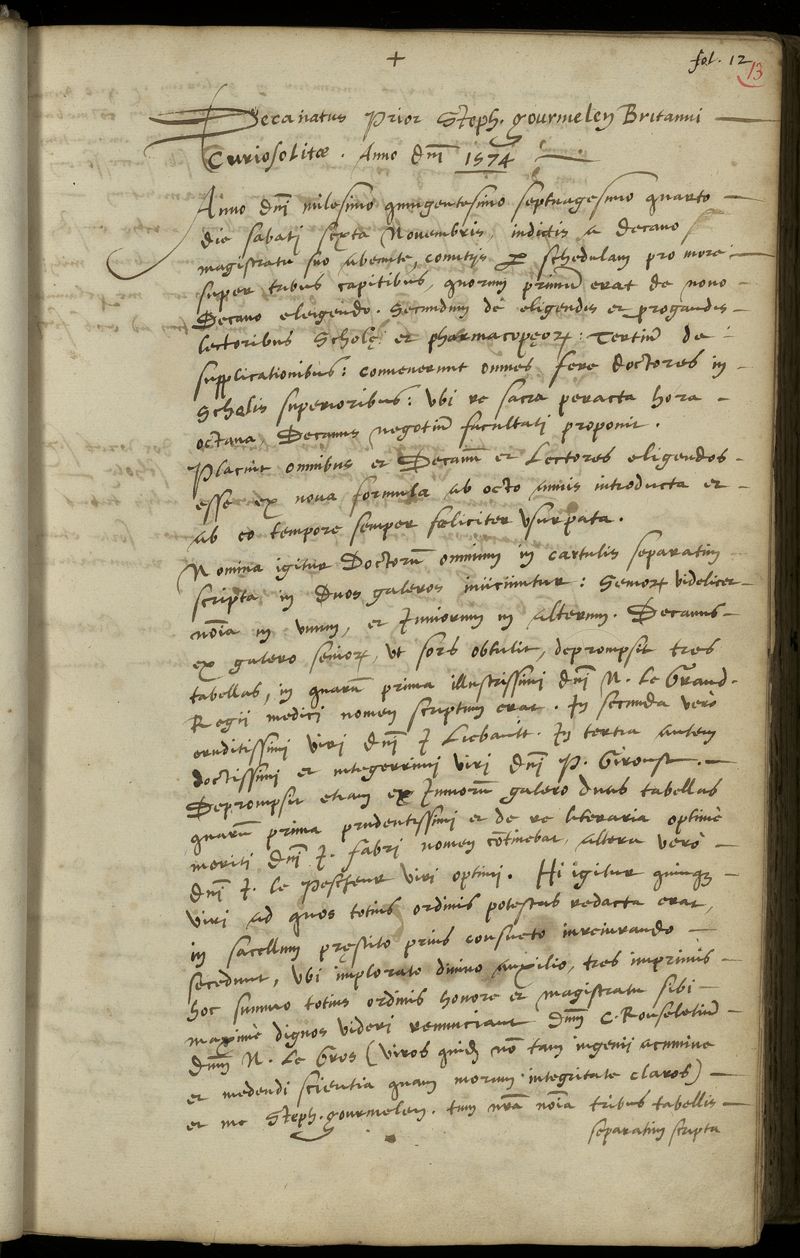 +
fol. 12
13
Decanatus Prior Steph. Gourmelen Britanni
Curiosolitæ. Anno dnī 1574
Anno dnī milesimo quingentesimo septuagesimo quarto
die sabati sexta Novembris, indictis a decano
magistratu suo abeunte, comitijs ꝑ schedulam pro more
super tribus capitibus, quorum primū erat de novo
Decano eleigendo. Secundum de eligendis et progandis
lectoribus Scholę et pharmacopęoꝝ: Tertiū de
supplicationibus: convenerunt omnes fere doctores in
Scholis superioribus: Vbi re sacra peracta hora
octava, Decanus negotiū facultati proponit.
Placuit omnibus et Decanū et Lectores eligendos
esse ex nova formula ab octo annis introducta et
ab eo tempore semper fœliciter vsurpata.
Nomina igitur Doctorū omnium in cartulis separatim
scripta in duos galeros iniiciuntur: Senioꝝ videlicet
noīa in vnum, et Juniorum in alterum. Decanus
ex galero senioꝝ, vt sors obtulit, deprompsit tres
tabellas, in quarū prima illustrissimi dnī N. le Grand
Regii medici nomen scriptum erat. In secunda verò
eruditissimi viri dnī J. Liebault. In tertia autem
doctissimi et integerrimi viri dnī P. Giroust.
Deprompsit etiam ex Juniorū galero duas tabellas
quarū prima prudentissimi et de re literaria optimè
meriti dnī J. fabri nomen cōtinebat, altera verò
dnī J. le Pescheur viri optimi. Hi igitur quinqꝫ
viri ad quos totius ordinis potestas redacta erat,
in sacellum pręstito prius consueto iureiurando
secedunt, vbi implorato divino auxilio, tres imprimis
hoc summo totius ordinis honore et magistratu sibi
maximè dignos videri renunciant dnm̄ C. Rousseletiū
dnm̄ N. Le Gros (viros quidē nō tam ingenii acumine
et medendi scientia quam morum integritate claros)
et me Steph. gourmelen. tum nr̄a noīa tribus tabellis
separatim scripta